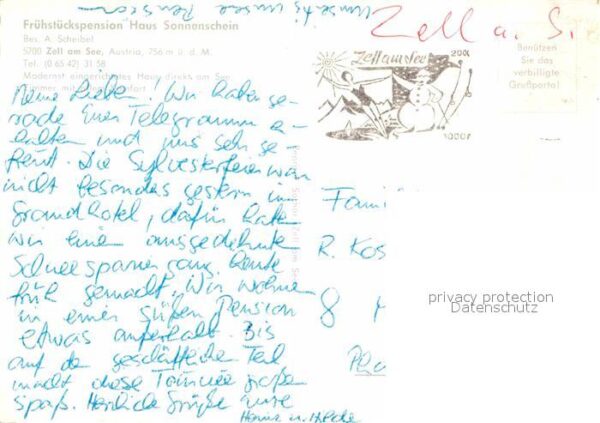 unserti unsere Pension
Zell a. S.
Frühstückspension Haus Sonnenschein
Bes. A. Scheibel
5700 Zell am See, Austria, 756 m ü. d. M.
Tel. (0 65 42) 31 58
Modernst eingerichtetes Haus direkt am See
Zell am See
Benützen
Sie das
verbilligte
Grußporto!
Meine Lieben! Wir haben ge-
rade Euer Telegramm er-
halten und uns sehr ge-
freut. Die Sylvesterfeier war
nicht besonders gestern im
Grandhotel, dafür haben
wir einen ausgedehnten
Schneespaziergang heute
früh gemacht. Wir wohnen
in einer süßen Pension
etwas außerhalb. Bis
auf den geschäftlichen Teil
macht diese Tournee große
Spaß. Herzliche Grüße Eure
Heinz u. Hilde
Fami
R. Kos
8
privacy protection
Datenschutz